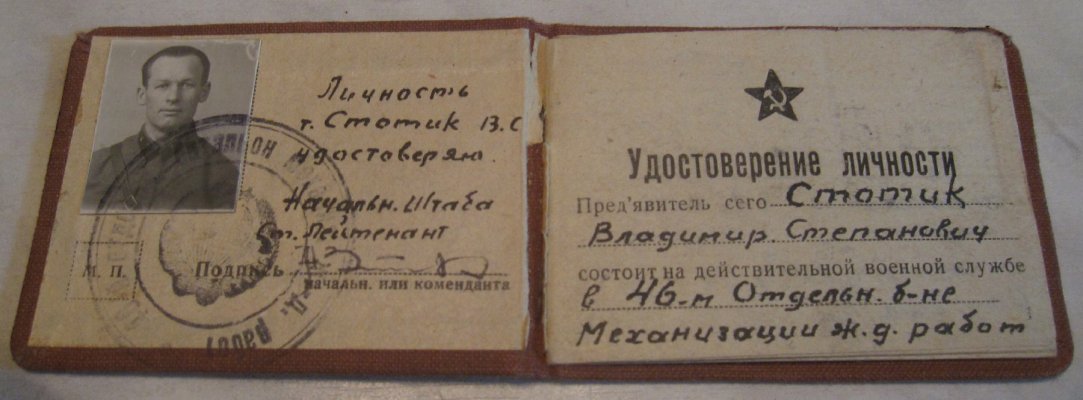 Личность
т. Стотик В. С
удостоверяю.
Начальн. Штаба
Ст. Лейтенант
М. П.
Подпись
начальн. или коменданта
Удостоверение личности
Пред'явитель сего Стотик
Владимир. Степанович
состоит на действительной военной службе
в 46-м Отдельн. б-не
Механизации ж.д. работ